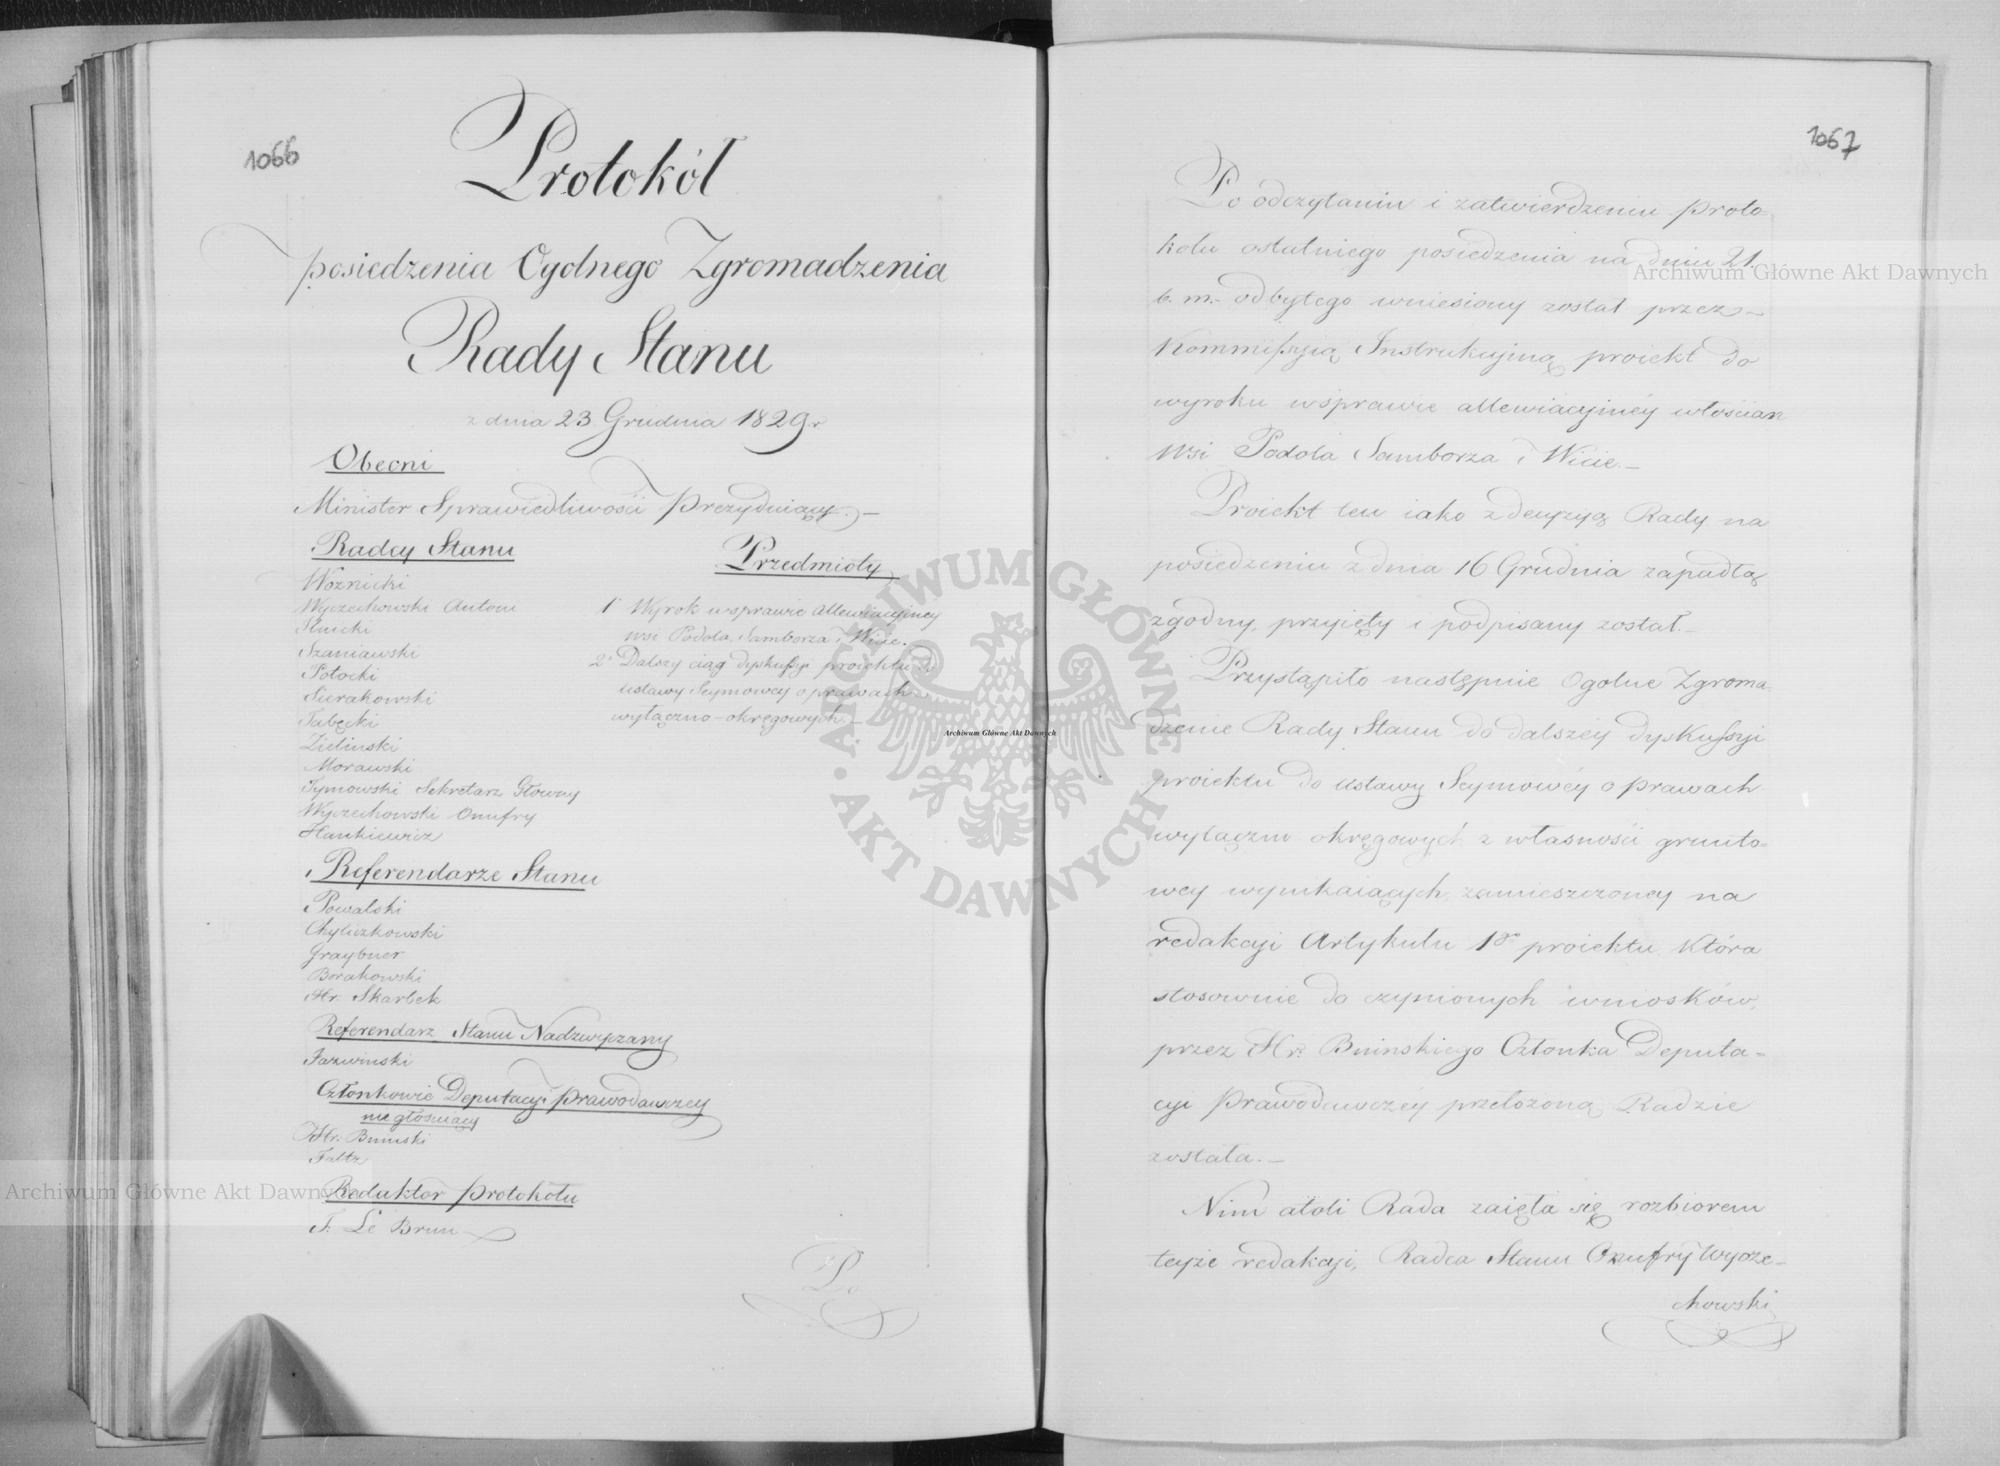 1066
Protokół
posiedzenia Ogolnego Zgromadzenia
Rady Stanu
z dnia 23 Grudnia 1829 r
Obecni
Minister Sprawiedliwości Prezyduiący.—
Radcy Stanu
Woźnicki
Wyczechowski Antoni
Szaniawski
Potocki
Sierakowski
Zieliński
Morawski
Tymowski Sekretarz Głowny
Wyczechowski Onufry
Hankiewicz
Referendarze Stanu
Powalski
Chyliczkowski
Graybner
Borakowski
Hr: Skarbek
Referendarz Stanu Nadzwyczany
Jazwinski
Członkowie Deputacyi Prawodawczey
nie głosuiący
Hr: Bninski
Faltz
Redaktor protokołu
F: Le Brun
Przedmioty
1° Wyrok wsprawie allewiacyiney
wsi Podola, Samborza i Wicie.
2° Dalszy ciąg dyskussyi proiektu do
ustawy Seymowey o prawach
wyłączno-okręgowych.—
Po
1067
Po odczytaniu i zatwierdzeniu proto-
kołu ostatniego posiedzenia na dniu 21.
b. m. odbytego wniesiony został przez—
Kommissyią Instrukcyiną proiekt do
wyroku wsprawie allewiacyinéy włościan
wsi Podola Samborza i Wicie.—
Proiekt ten iako z decyzyą Rady na
posiedzeniu z dnia 16 Grudnia zapadłą
zgodny, przyięty i podpisany został.—
Przystąpiło następnie Ogolne Zgroma-
dzenie Rady Stanu do dalszey dyskussyi
proiektu do ustawy Seymowéy o prawach
wyłączno okręgowych z własności grunto-
wey wynikaiących, zamieszczoney na
redakcyi Artykułu 1go proiektu, która
stosownie do czynionych wniosków,
przez Hr: Bninskiego Członka Deputa-
cyi Prawodawczéy przełożoną Radzie
została.—
Nim atoli Rada zaięła się rozbiorem
teyże redakcyi, Radca Stanu Onufry Wycze-
chowski
Archiwum Główne Akt Dawnych
Archiwum Główne Akt Dawnych
Archiwum Główne Akt Dawnych
ARCHIWUM GŁÓWNE AKT DAWNYCH